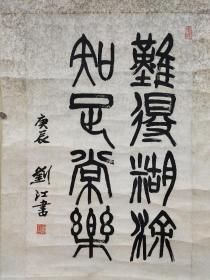 難得湖涂
知足常樂
庚辰
劉江書